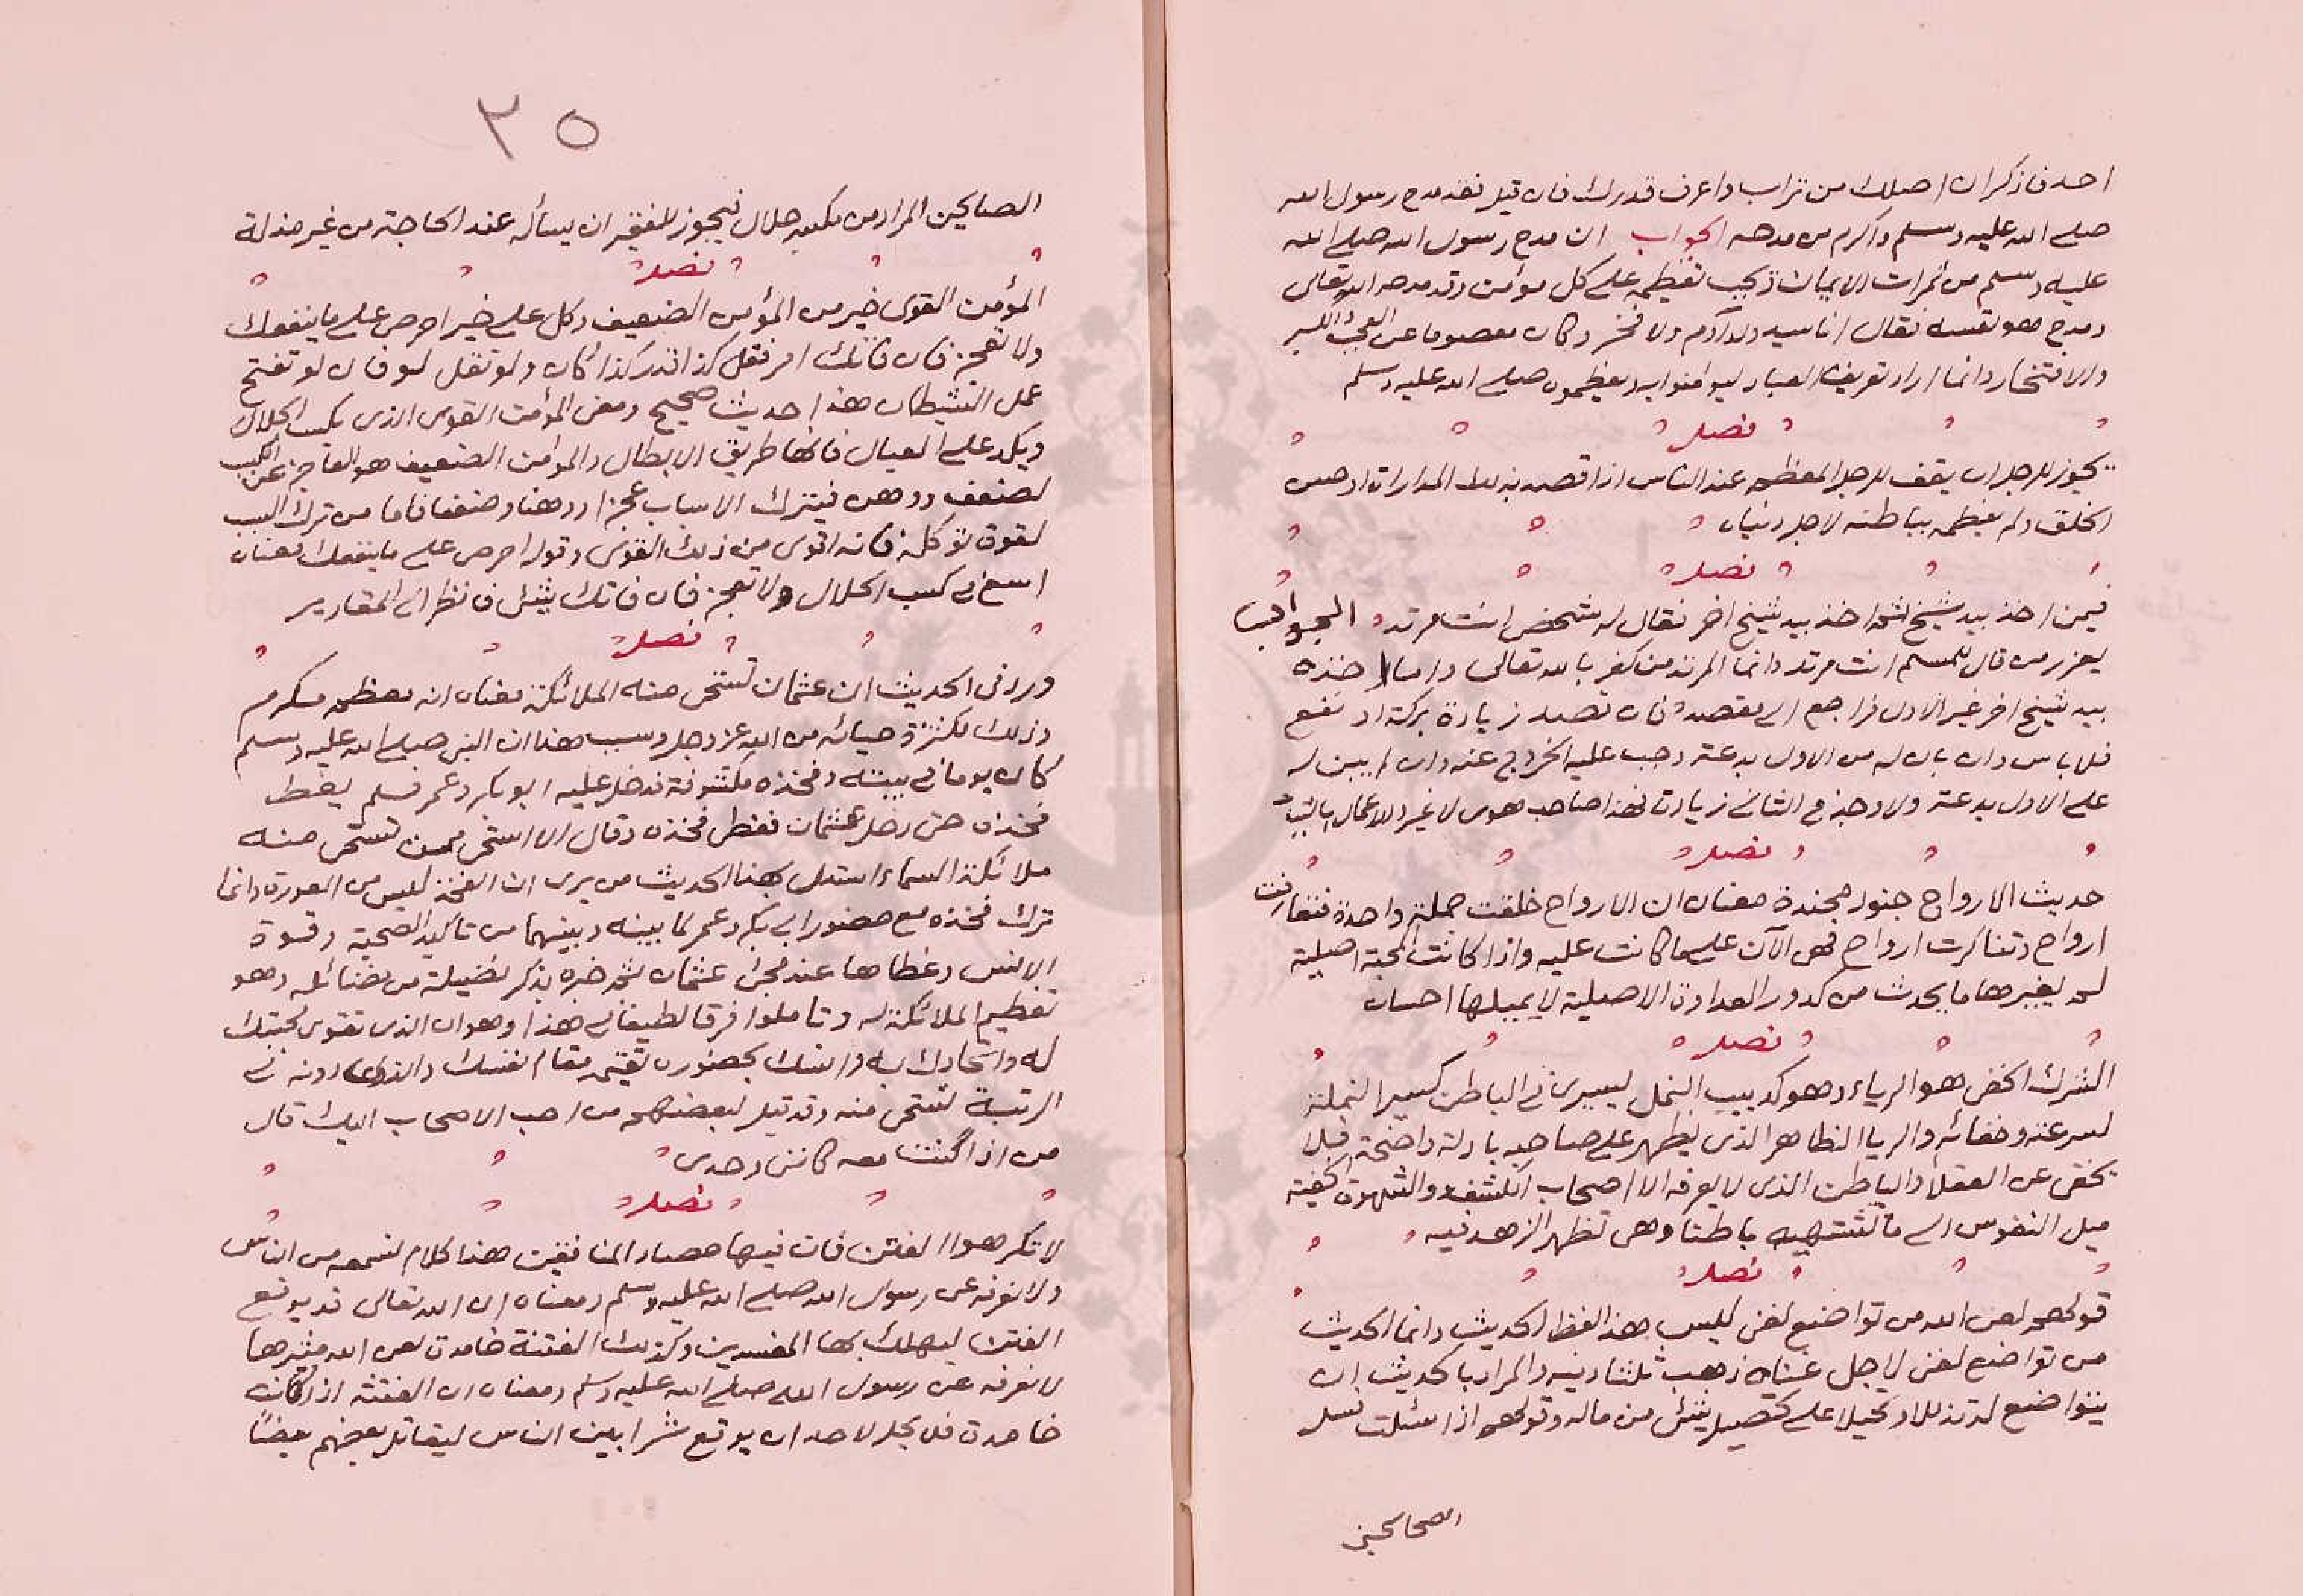 احد فاذكر ان اصلك من تراب واعرف قدرك فان قيل فقد مدح رسول الله
صلى الله عليه وسلم واكرم من مدحه الجواب ان مدح رسول الله صلى الله
عليه وسلم من ثمرات الايمان يجب تعظيمه على كل مؤمن وقد مدحه الله تعالى
ومدح هو نفسه فقال انا سيد ولد آدم ولا فخر وكان معصوما عن العجب والكبر
والافتخار وانما اراد تعريف العباد ليؤمنوا به ويعظمون صلى الله عليه وسلم
فصل
يجوز للرجل ان يقف للرجل المعظم عند الناس اذا قصد بذلك المدارات او حسن
الخلق ولم يعظمه بباطنه لاجل دنياه
فصل
فيمن اخذ بيد شيخ ثم اخذ بيد شيخ اخر فقال له شخص انت مرتد الجواب
يعزر من قال لمسلم انت مرتد وانما المرتد من كفر بالله تعالى واما اخذه
بيد شيخ اخر غير الاول فراجع الى مقصده فان قصد زيادة بركة او نفع
فلا باس وان بان له من الاول بدعة وجب عليه الخروج عنه وان لم يبين له
على الاول بدعة ولا وجد في الثاني زيادة فهذا صاحب هوى لا غير والاعمال بالنيات
فصل
حديث الارواح جنود مجندة معناه ان الارواح خلقت جملة واحدة فتعارفت
ارواح وتناكرت ارواح فهي الآن على ما كانت عليه واذا كانت المحبة اصلية
لم يغيرها ما يحدث من كدور العداوة الاصلية لا يميلها احسان
فصل
الشرك الخفي هو الرياء وهو كدبيب النمل ليسرى في الباطن كسير النملة
لسرعته وخفائه والريا الظاهر الذي يظهر على صاحبه بادلة واضحة فلا
يخفى عن العقلاء والباطن الذي لا يعرفه الا اصحاب الكشف والشهوة الخفية
ميل النفوس الى ما تشتهيه باطنا وهي تظهر الزهد فيه
فصل
قولهم لعن الله من تواضع لغني ليس هذا لفظ الحديث وانما الحديث
من تواضع لغني لاجل غناه ذهب ثلثا دينه والمراد بالحديث ان
يتواضع له تذللا وتحيلا على تحصيل شئ من ماله وقولهم اذا سئلت فسل
الصالحين
٣٥
الصالحين المراد من مكسبه حلال فيجوز للفقير ان يسأله عند الحاجة من غير مذلة
فصل
المؤمن القوى خير من المؤمن الضعيف وكل على خير احرص على ما ينفعك
ولا تعجز فان فاتك امر فقل كذا قدر كذا كان ولو تقل لو فان لو تفتح
عمل الشيطان هذا حديث صحيح ومعنى المؤمن القوى الذي يكسب الحلال
ويكد على العيال فانها طريق الابطال والمؤمن الضعيف هو العاجز عن الكسب
لضعف ووهن فيترك الاسباب عجزا ووهنا وضعفا فاما من ترك السبب
لقوة توكله فانه اقوى من ذلك القوى وقوله احرص على ما ينفعك معناه
اسع في كسب الحلال ولا تعجز فان فاتك شئ فانظر الى المقادير
فصل
ورد في الحديث ان عثمان تستحي منه الملائكة معناه انه معظم مكرم
وذلك لكثرة حيائه من الله عز وجل وسبب هذا ان النبي صلى الله عليه وسلم
كان يوما في بيته وفخذه مكشوفة فدخل عليه ابو بكر وعمر فسلم يغط
فخذه حتى دخل عثمان فغطى فخذه وقال الا استحي ممن تستحي منه
ملائكة السماء استدل بهذا الحديث من يرى ان الفخذ ليس من العورة وانما
ترك فخذه مع حضور ابي بكر وعمر لما بينه وبينهما من تاكيد الصحبة وقوة
الانس وغطاها عند مجئ عثمان ثم خبره بذكر فضيلة من فضائله وهو
تعظيم الملائكة له وتاملوا فرقا لطيفا في هذا وهو ان الذي تقوى محبتك
له واتحادك به وانسك بحضوره تقيمه مقام نفسك والذي دونه في
الرتبة تستحي منه وقد قيل لبعضهم من احب الاصحاب اليك قال
من اذا كنت معه كانني وحدى
فصل
لا تكرهوا الفتن فان فيها حصاد المنافقين هذا كلام نسمعه من الناس
ولا نعرفه عن رسول الله صلى الله عليه وسلم ومعناه ان الله تعالى قد يوقع
الفتن ليهلك بها المفسدين وكذلك الفتنة خامدة لعن الله مثيرها
لا نعرفه عن رسول الله صلى الله عليه وسلم ومعناه ان الفتنة اذا كانت
خامدة فلا يحل لاحد ان يوقع شرا بين الناس ليقاتل بعضهم بعضا